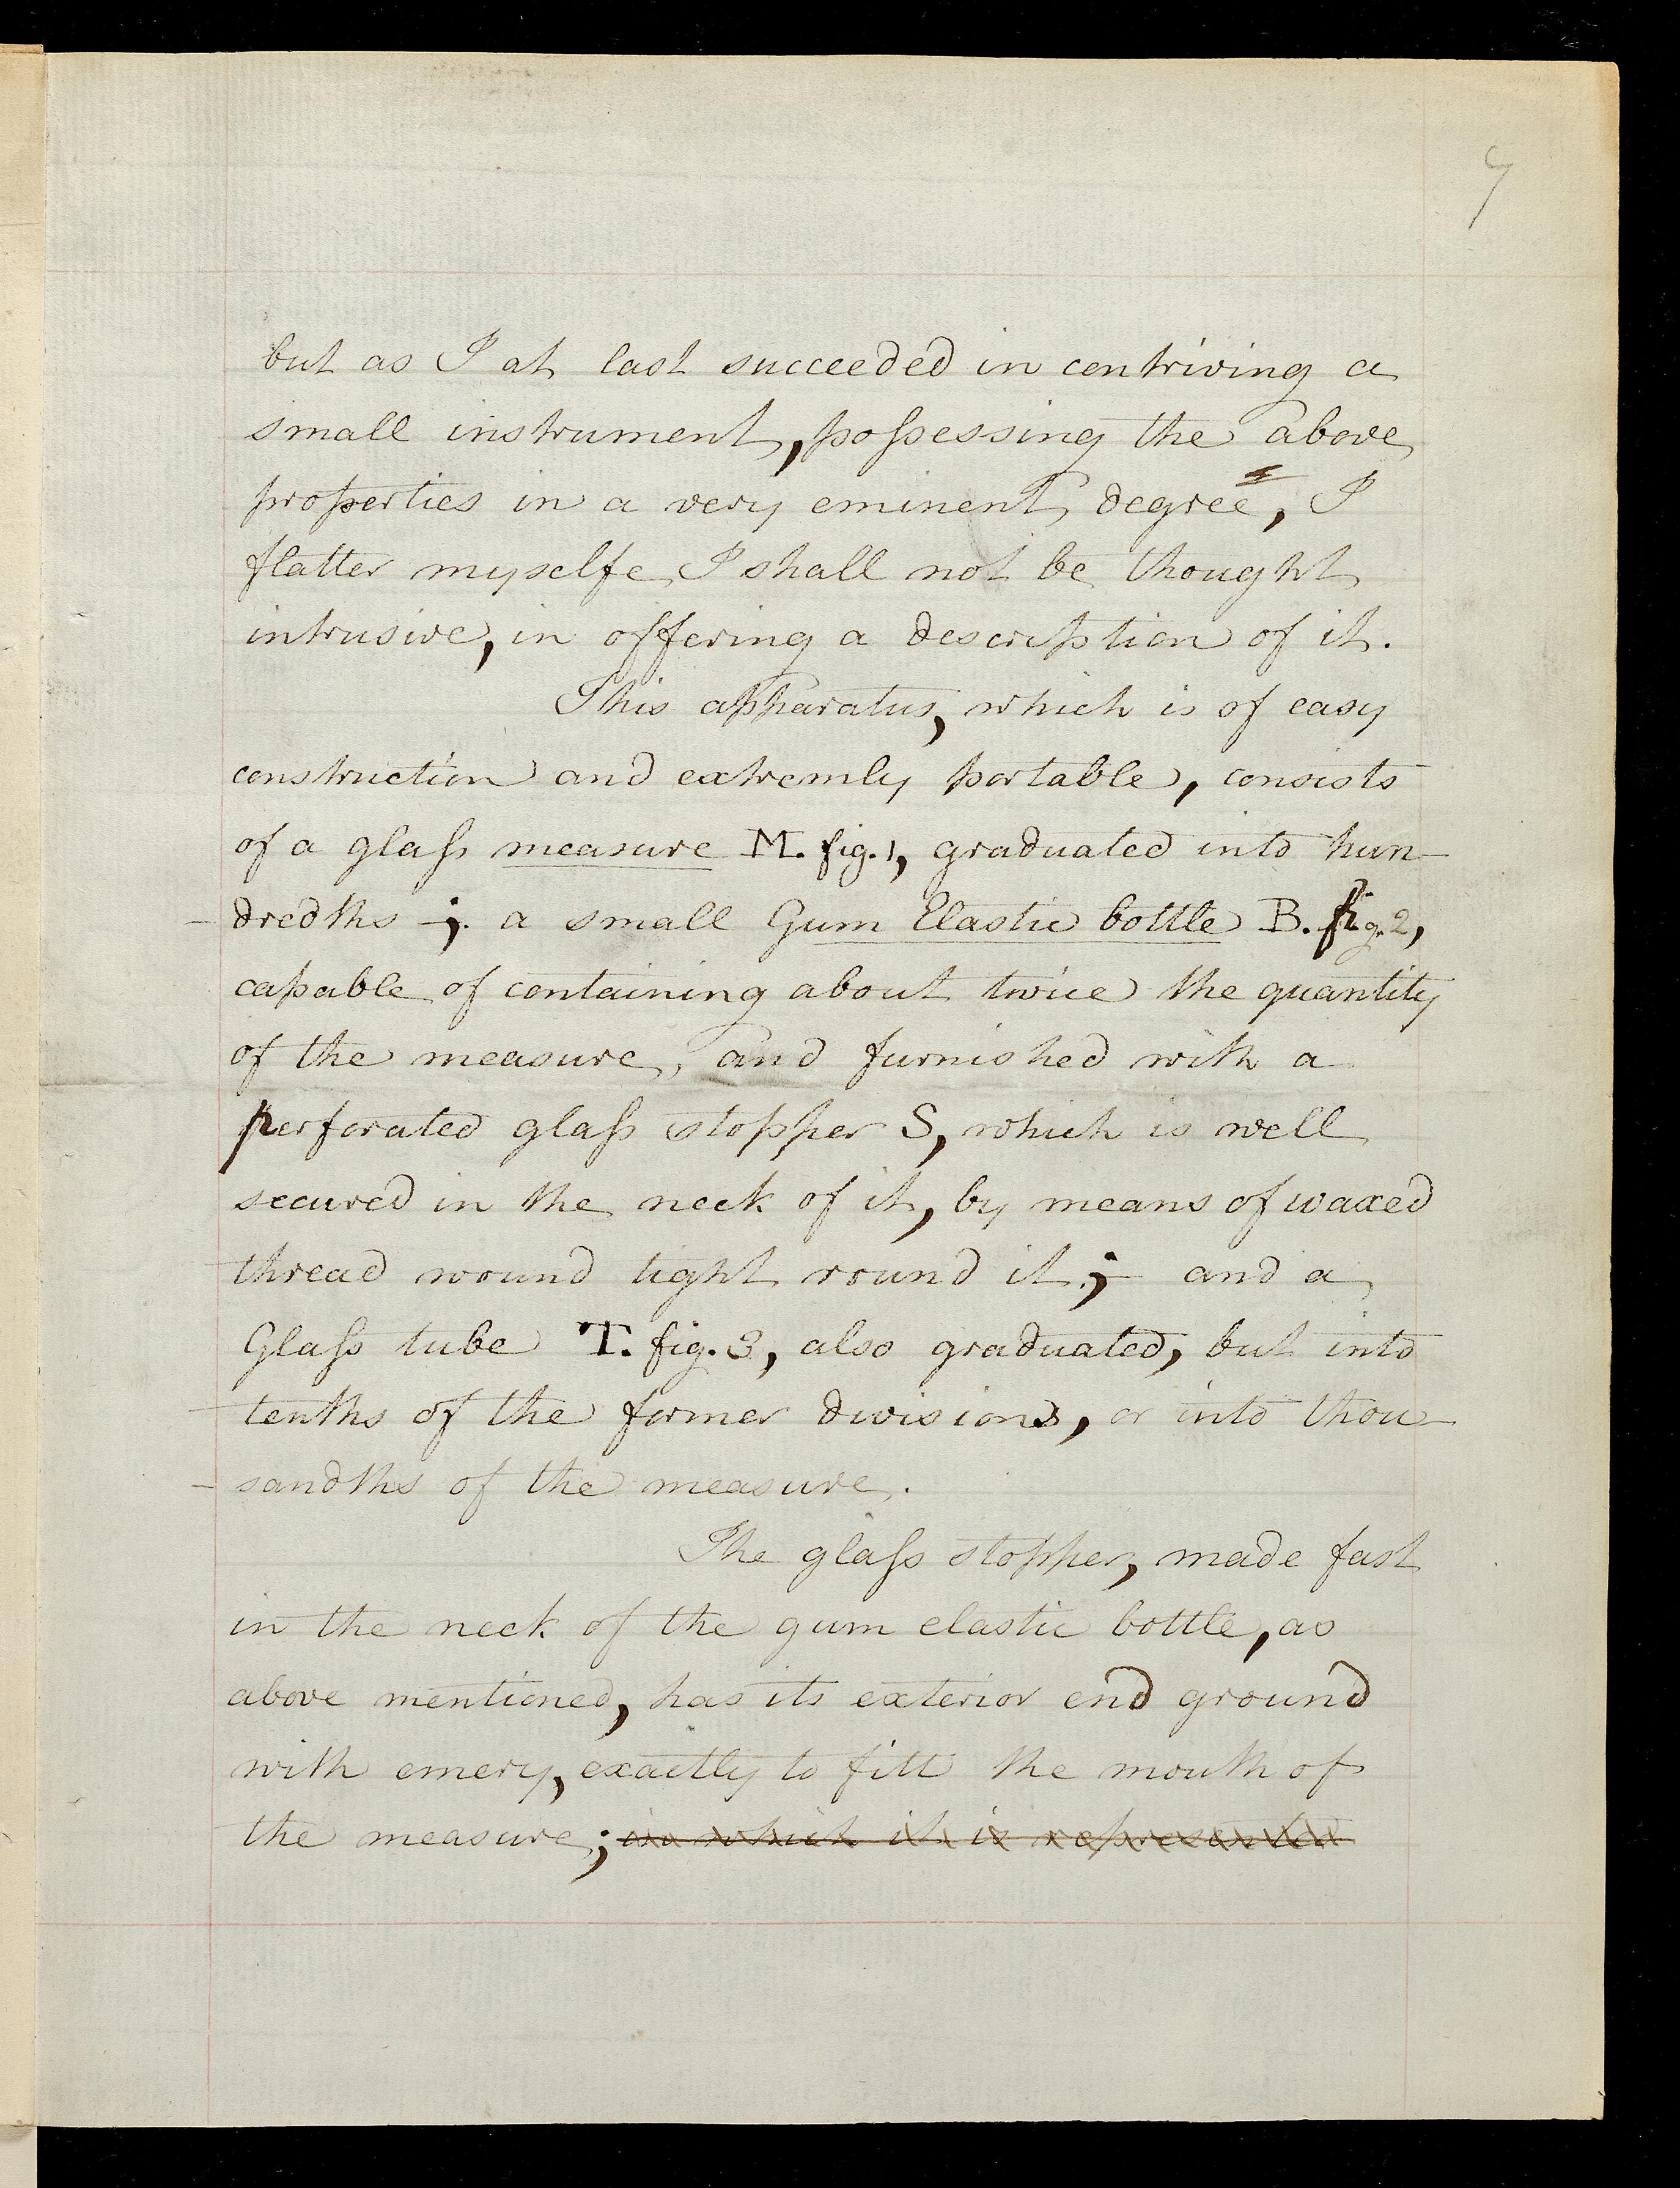 7
but as I at last succeeded in contriving a
small instrument, poſsessing the above
properties in a very eminent degree, I
flatter myselfe I shall not be thought
intrusive, in offering a description of it.
This apparatus, which is of easy
construction and extremly portable, consists
of a glaſs measure M. fig. 1, graduated into hun-
-dredths ; a small Gum Elastic bottle B. fig. 2,
capable of containing about twice the quantity
of the measure, and furnished with a
perforated glaſs stopper S, which is well
secured in the neck of it, by means of waxed
thread wound tight round it; - and a
Glaſs tube T. fig. 3, also graduated, but into
tenths of the former divisions, or into thou-
-sandths of the measure.
The glaſs stopper, made fast
in the neck of the gum elastic bottle, as
above mentioned, has its exterior end ground
with emery, exactly to fitt the mouth of
the measure; in which it is represented